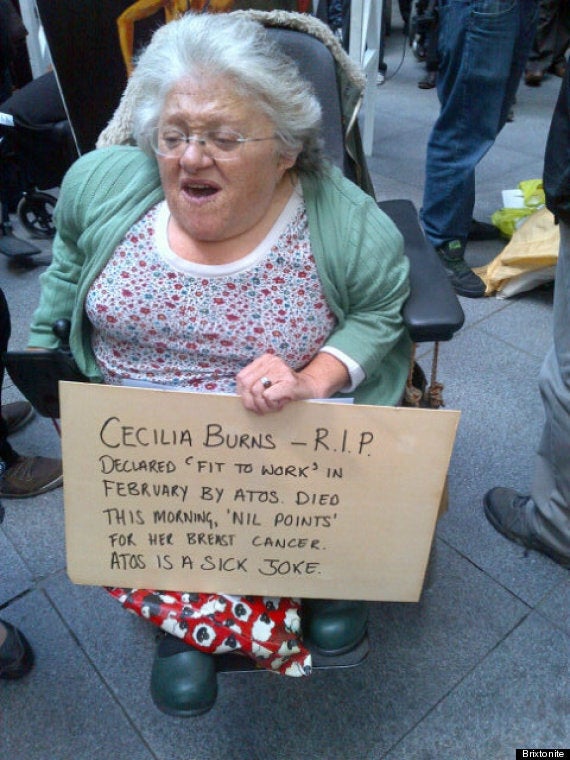 CECILIA BURNS – R.I.P.
DECLARED 'FIT TO WORK' IN
FEBRUARY BY ATOS. DIED
THIS MORNING, 'NIL POINTS'
FOR HER BREAST CANCER.
ATOS IS A SICK JOKE.
Brixtonite